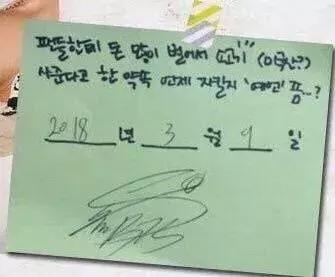 팬들한테 돈 많이 벌어서 고기 (이국주?)
사준다고 한 약속 언제 지킬지 '예언' 쫌..?
2018 년 3 월 9 일